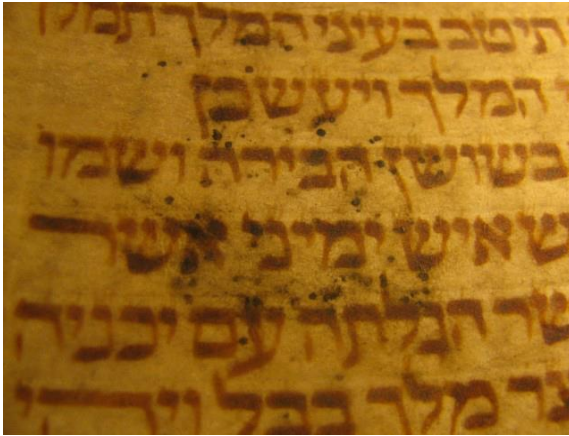 תיטב בעיני המלך תמלך
המלך ויעש כן
בשושן הבירה ושמו
ש איש ימיני אשר
שר הגלתה עם יכניה
צר מלך בבל ויהי